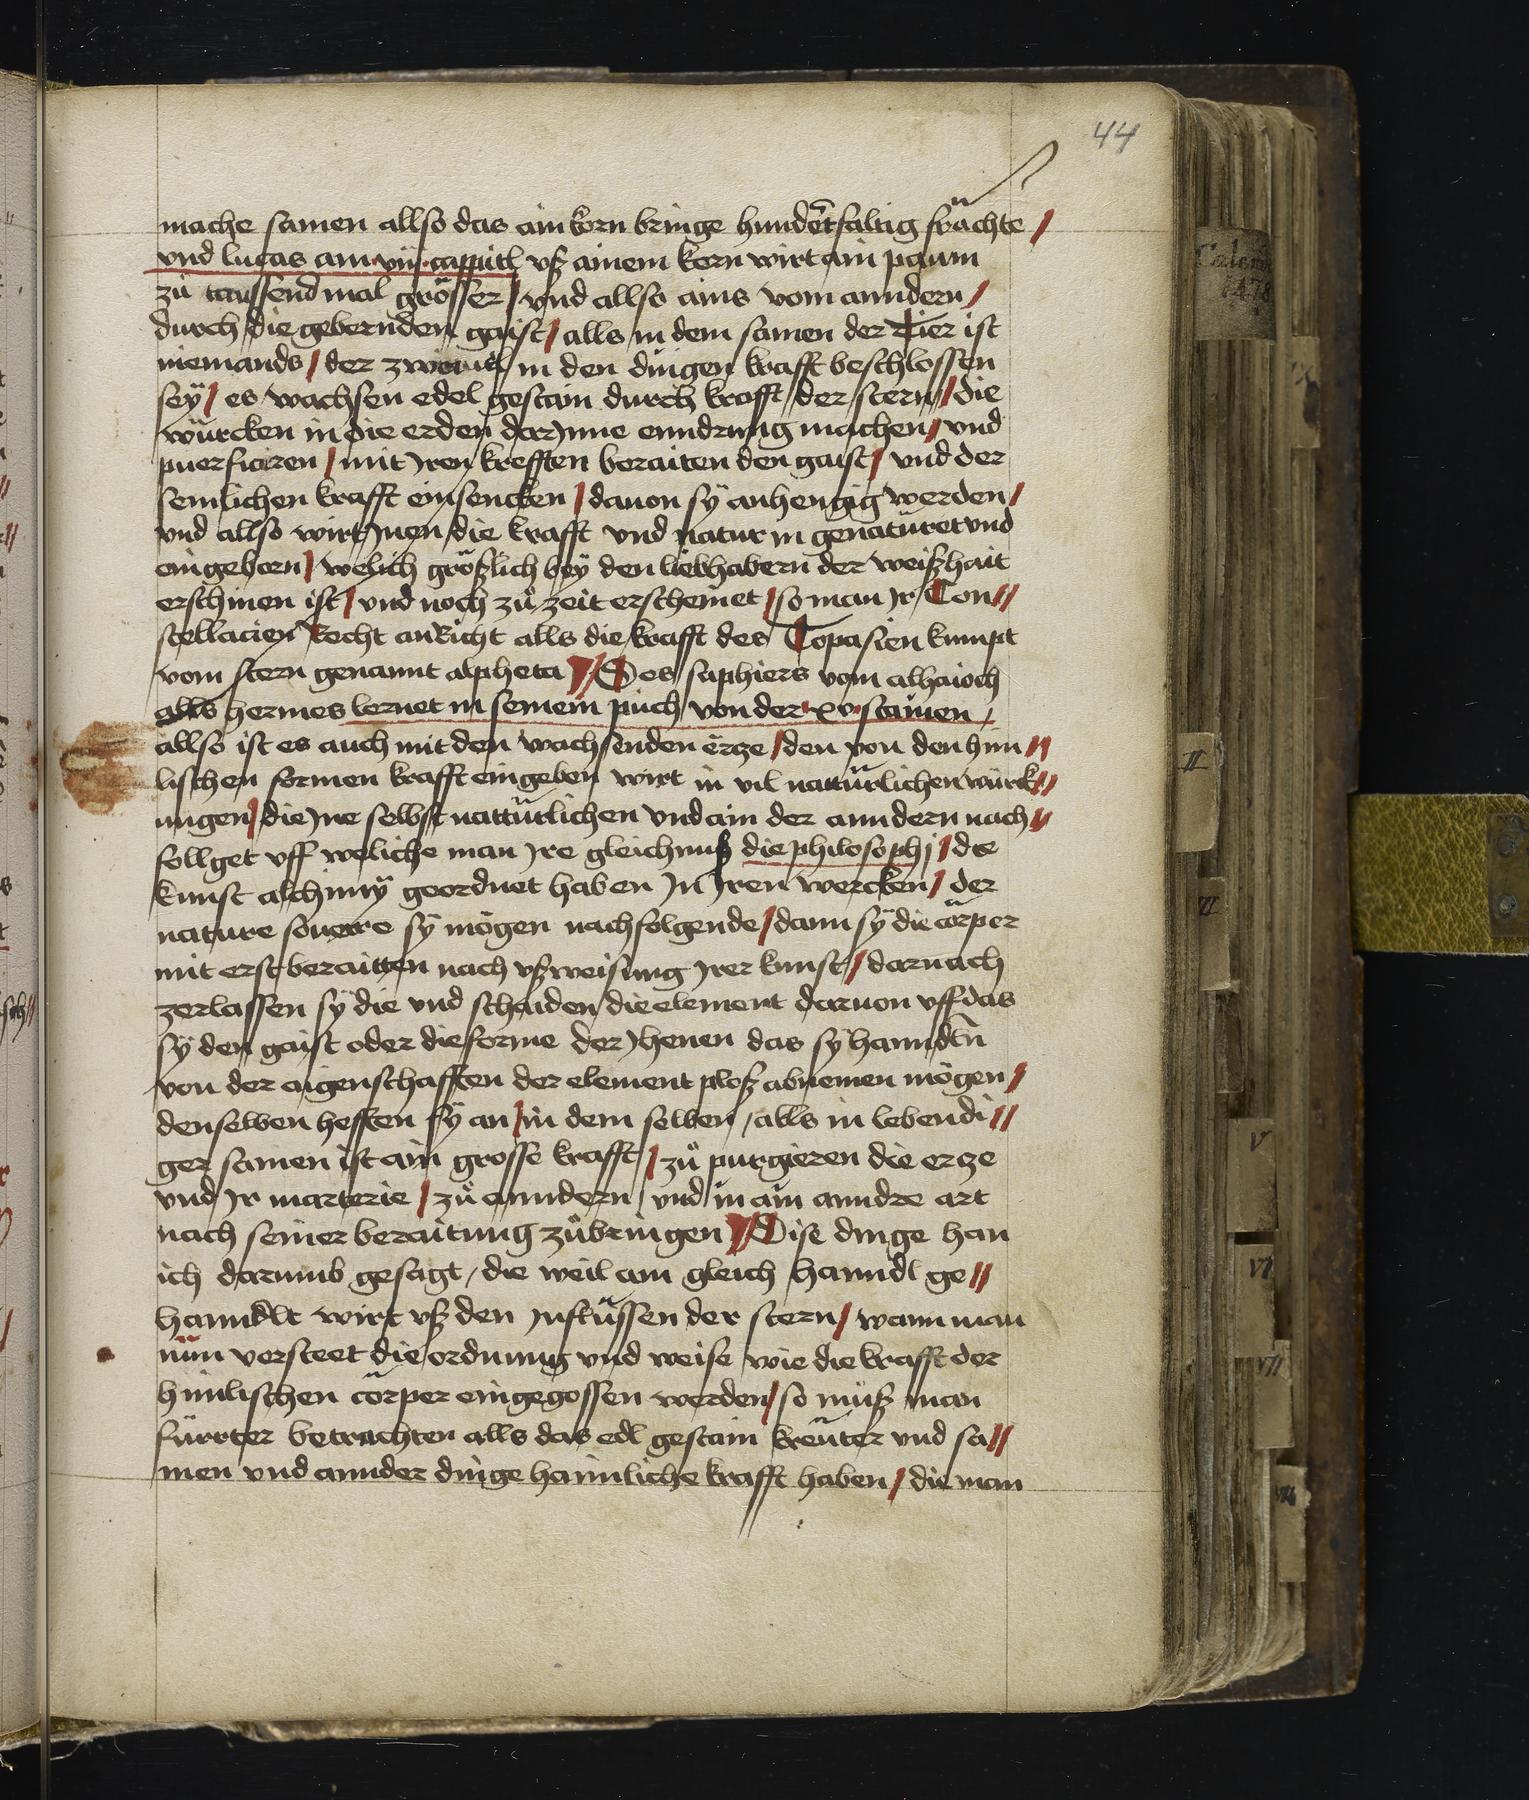 44
mache samen allso das ain korn bringe hundertfaltig früchte /
vnd lucas am viij cappitl vß ainem kern wirt ain paum
zů taussend mal grösser / vnd allso ains vom anndern /
durch die gebernden gaist / alls in dem samen der Tier ist
niemands / der zweiuel in den dingen krafft beschlossen
seÿ / es wachsen edel gestain durch krafft der stern / die
würcken in die erden darJnne enndrung machen / vnd
puerficiren / mit Jren krefften beraiten den gaist / vnd der
semlichen krafft einsencken / dauon sÿ anhengig werden /
vnd allso wirt Jnen die krafft vnd natur in genatüret vnd
eingeborn / welich größlich beÿ den liebhabern der weißhait
erschinen ist / vnd noch zů zeit erscheinet / so man Jr Con //
stellacien Recht anRicht alls die krafft des Topasien kumpt
vom stern genannt alpheta // Des saphiers vom alhaioch
alls hermes lernet in seinem puch von der xv stainen /
allso ist es auch mit den wachsenden ërtze / den von den him //
lischen formen krafft eingeben wirt in vil natturlichen würck //
ungen / die Jne selbst natturlichen vnd ain der anndern nach //
follget vff weliche man Jre gleichnuß die philosophi / die
kunst alchimÿ geordnet haben Jn Jren wercken / der
nature souerre sÿ mögen nachfolgende / dann sÿ die cörper
mit erst beraitten nach vßweisung Jrer kunst / darnach
zerlassen sÿ die vnd schaiden die element daruon vff das
sÿ den gaist oder die forme der Jhenen das sÿ hanndln
von der aigenschafften der element ploß abnemen mögen /
denselben hefften sÿ an / in dem selben / alls in lebendi //
ger samen ist ain grosse krafft / zů purgieren die ertze
vnd Jr marterie / zů enndern / vnd in ain anndre art
nach seiner beraitung zůbringen // Dise dinge han
ich darumb gesagt / die weil am gleich hanndl ge //
hanndlt wirt vß den Jnflüssen der stern / wann man
nün versteet die ordnung vnd weise wie die krafft der
himlischen cörper eingegossen werden / so müß man
fürrter betrachten alls das edl gestain kreüter vnd sa //
men vnd annder dinge haimliche krafft haben / die man
II
V
VI
VII